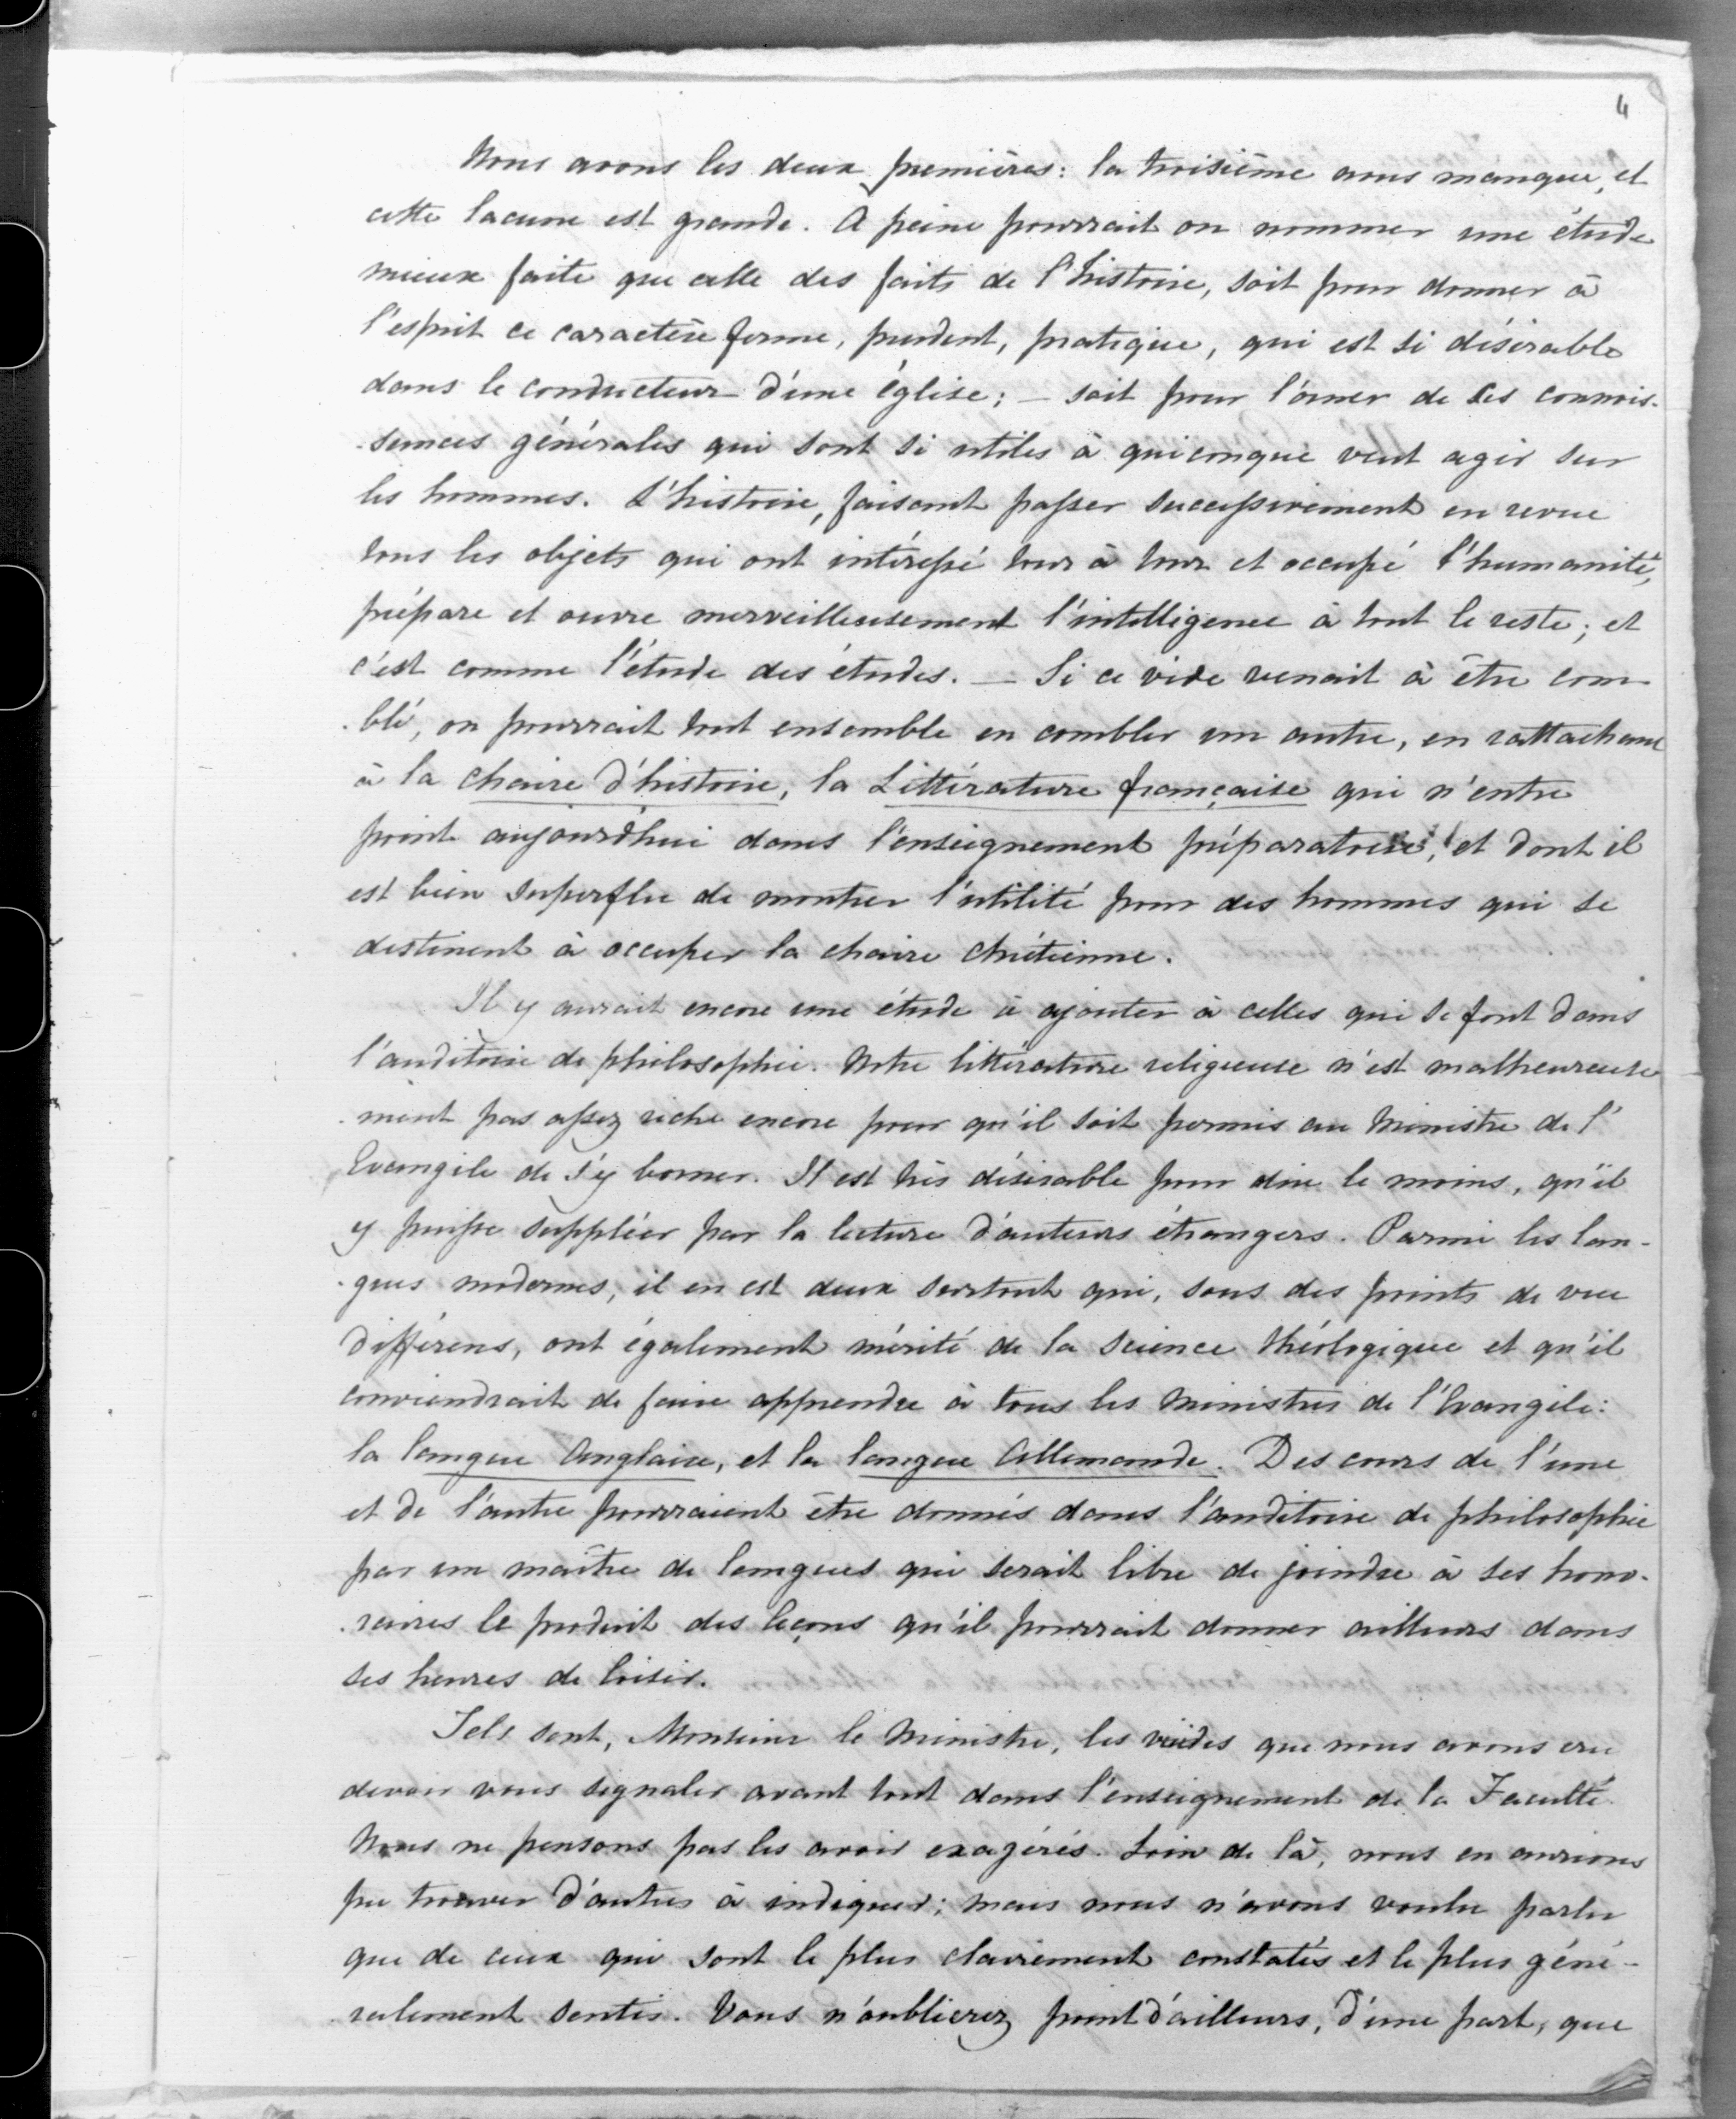 4
Nous avons les deux premières: la troisième nous manque, et
cette lacune est grande. A peine pourrait on nommer une étude
mieux faite que celle des faits de l'histoire, soit pour donner à
l'esprit ce caractère ferme, prudent, pratique, qui est si désirable
dans le conducteur d'une église; — soit pour l'orner de ces connois-
-sances générales qui sont si utiles à quiconque veut agir sur
les hommes. L'histoire, faisant passer successivement en revue
tous les objets qui ont intéressé tour à tour et occupé l'humanité,
prépare et ouvre merveilleusement l'intelligence à tout le reste; et
c'est comme l'étude des études. — Si ce vide venait à être com-
-blé, on pourrait tout ensemble en combler un autre, en rattachant
à la chaire d'histoire, la Littérature française qui n'entre
point aujourd'hui dans l'enseignement préparatoire, et dont il
est bien superflu de montrer l'utilité pour des hommes qui se
destinent à occuper la chaire chrétienne.
Il y aurait encore une étude à ajouter à celles qui se font dans
l'auditoire de philosophie. Notre littérature religieuse n'est malheureuse
-ment pas assez riche encore pour qu'il soit permis au Ministre de l'
Evangile de s'y borner. Il est très désirable pour dire le moins, qu'il
y puisse suppléer par la lecture d'auteurs étrangers. Parmi les lan-
-gues modernes, il en est deux surtout qui, sous des points de vue
différens, ont également mérité de la science théologique et qu'il
conviendrait de faire apprendre à tous les Ministres de l'Evangile:
la langue Anglaise, et la langue Allemande. Des cours de l'une
et de l'autre pourraient être donnés dans l'auditoire de philosophie
par un maître de langues qui serait libre de joindre à ses hono-
-raires le produit des leçons qu'il pourrait donner ailleurs dans
ses heures de loisir.
Tels sont, Monsieur le Ministre, les vuides que nous avons cru
devoir vous signaler avant tout dans l'enseignement de la Faculté.
Nous ne pensons pas les avoir exagérés. Loin de là, nous en aurions
pu trouver d'autres à indiquer; mais nous n'avons voulu parler
que de ceux qui sont le plus clairement constatés et le plus géné-
-ralement sentis. Vous n'oublierez point d'ailleurs, d'une part, que